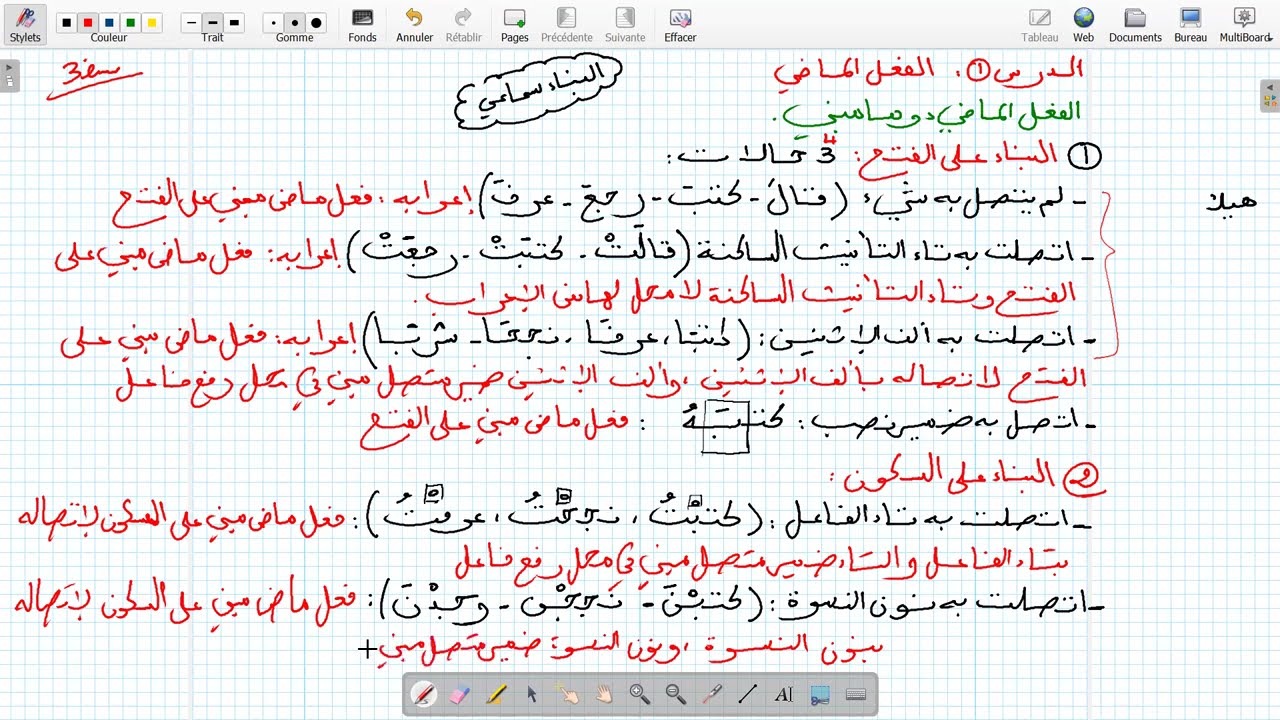 Stylets Couleur Trait Gomme Fonds Annuler Rétablir Pages Précédente Suivante Effacer Tableau Web Documents Bureau MultiBoard
الدرس ①، الفعل الماضي
البناء سماعي
الفعل الماضي دوما مبني.
① البناء على الفتح: 3 4 حالات:
- لم يتصل به شيء (قالَ - كتبَ - رجعَ - عرفَ) إعرابه: فعل ماض مبني على الفتح
هيلا
- اتصلت به تاء التأنيث الساكنة (قالَتْ - كتبَتْ - رجعَتْ) إعرابه: فعل ماض مبني على
الفتح وتاء التأنيث الساكنة لا محل لها من الإعراب.
- اتصلت به ألف الإثنين: (كتبَا، عرفَا، نجحَا - شربَا) إعرابه: فعل ماض مبني على
الفتح لاتصاله بألف الإثنين، وألف الإثنين ضمير متصل مبني في محل رفع فاعل
- اتصل به ضمير نصب: كتبَهُ : فعل ماض مبني على الفتح
② البناء على السكون:
- اتصلت به تاء الفاعل: (كتبْتُ، نجحْتُ، عرفْتُ): فعل ماض مبني على السكون لاتصاله
بتاء الفاعل والتاء ضمير متصل مبني في محل رفع فاعل
- اتصلت به نون النسوة: (كتبْنَ - نَجحْنَ - وجدْنَ): فعل ماض مبني على السكون لاتصاله
بنون النسوة، ونون النسوة ضمير متصل مبني